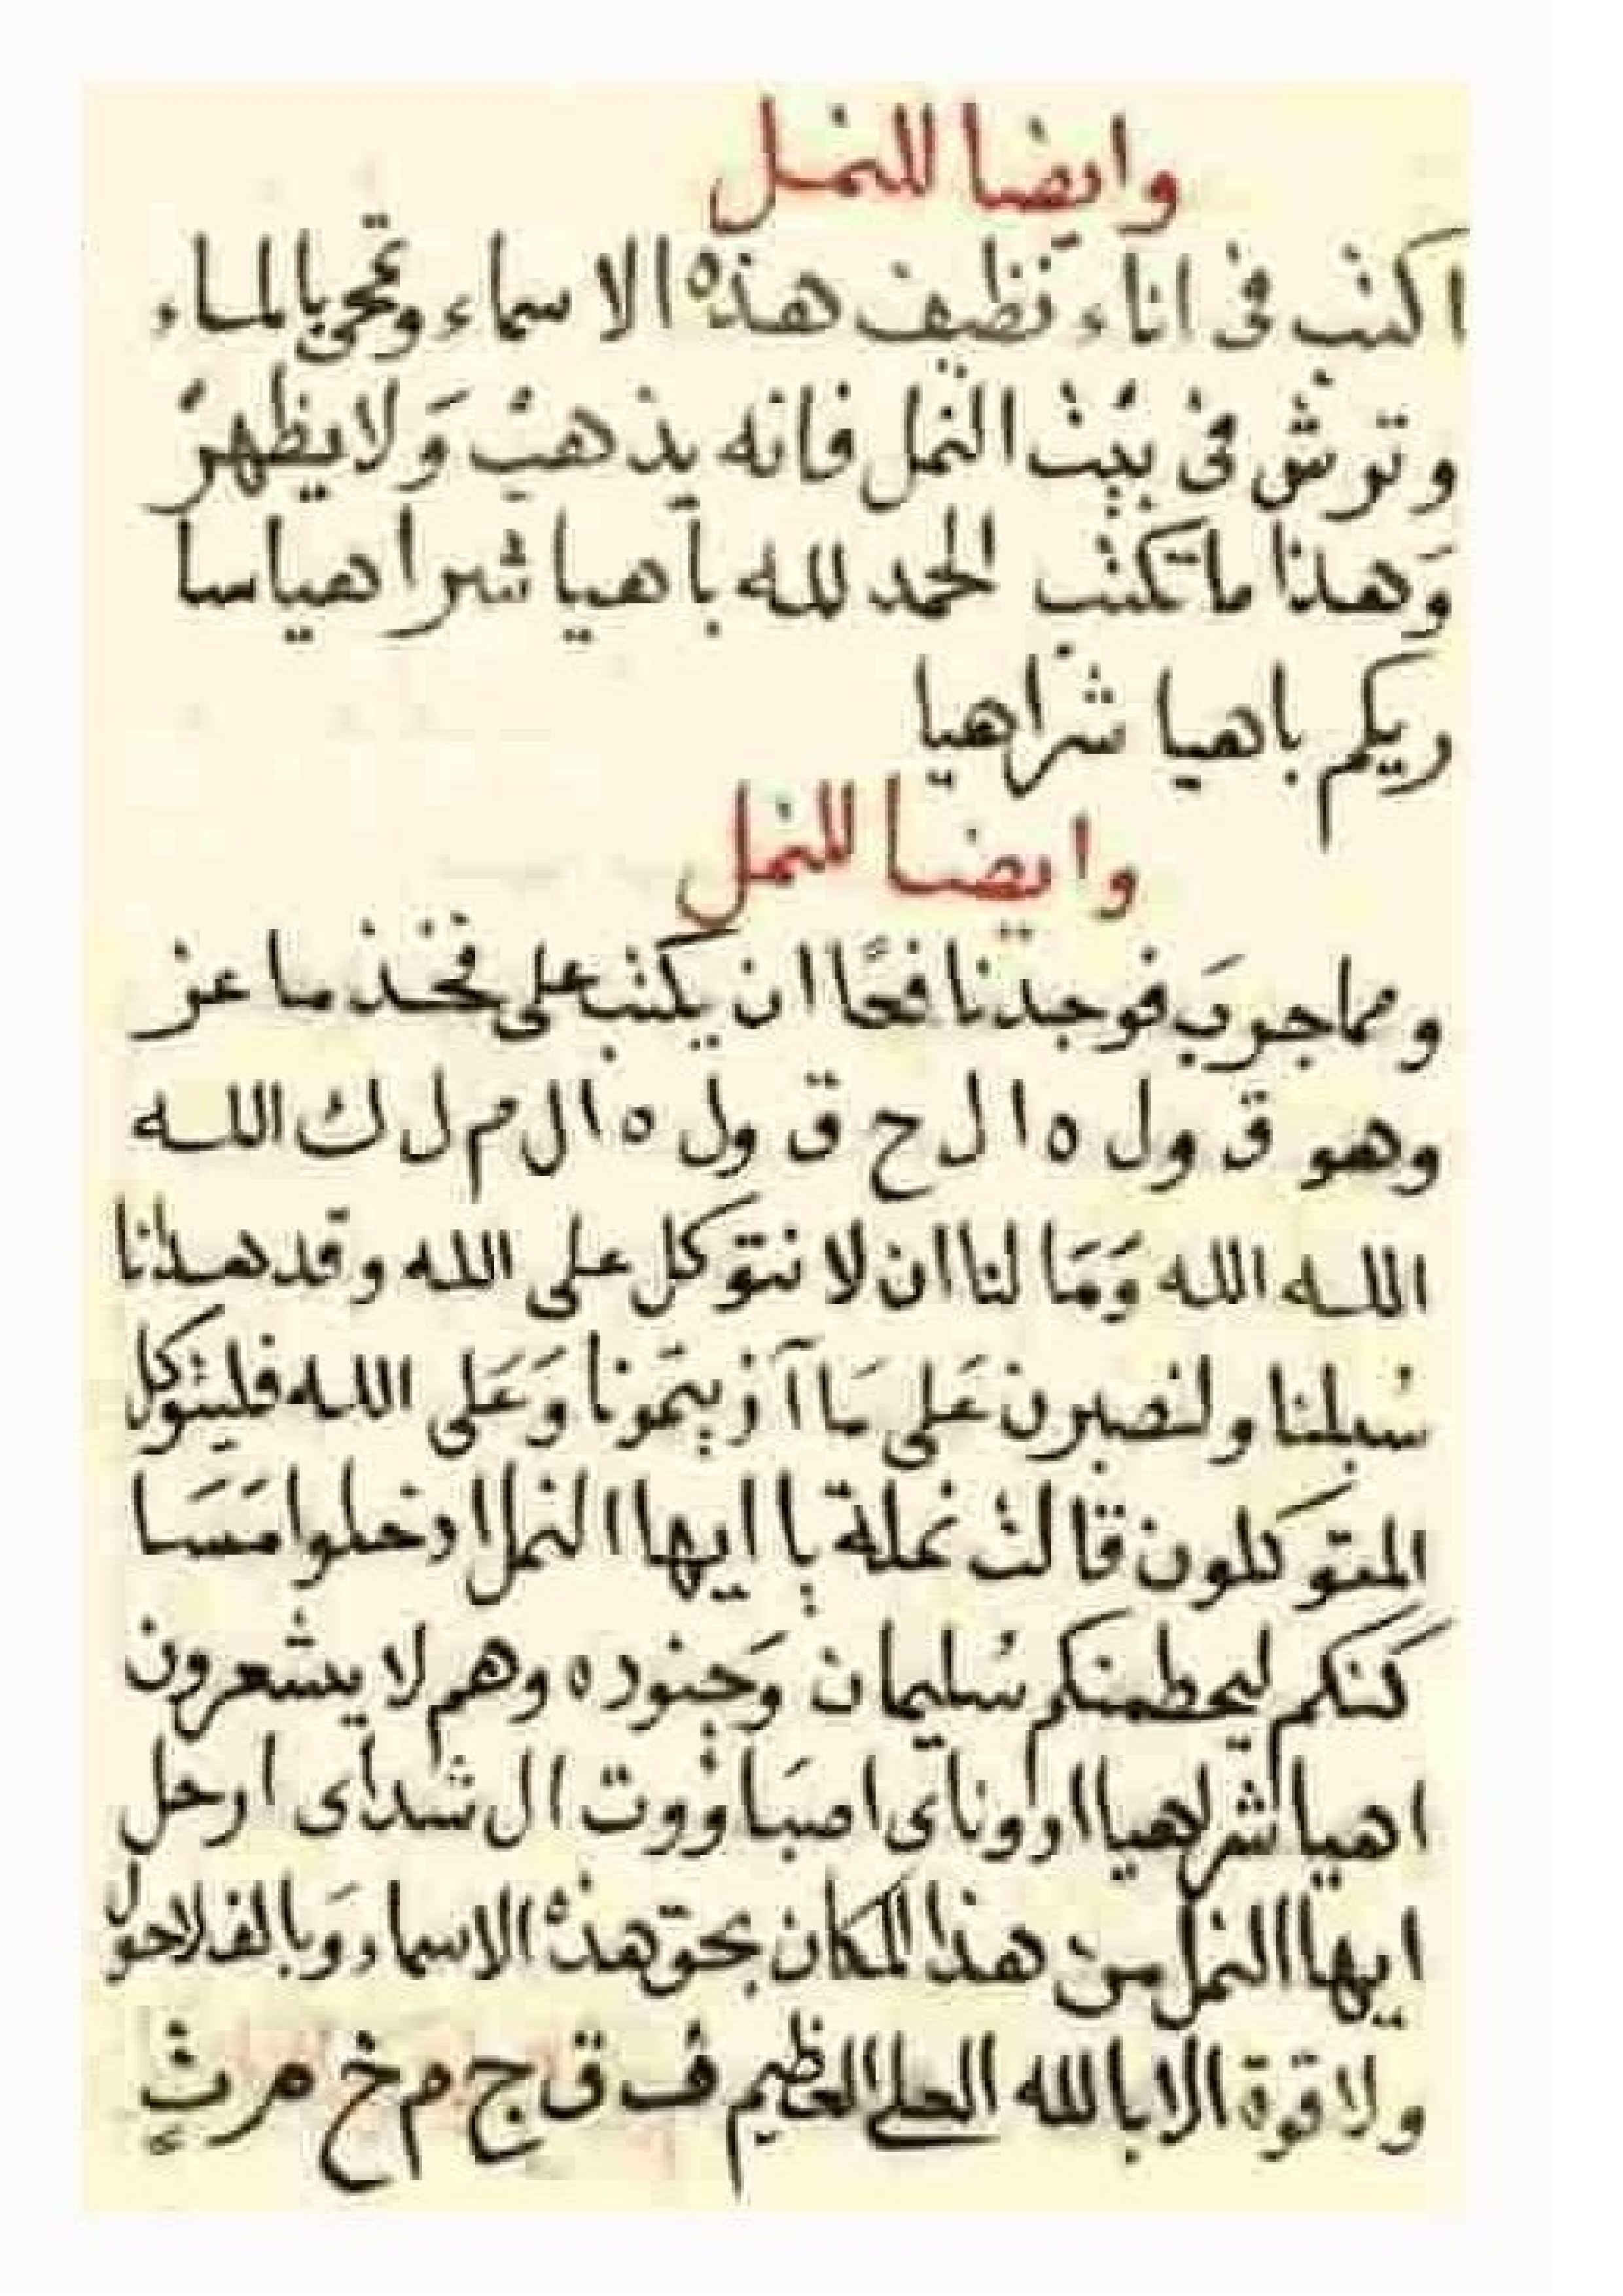 وايضا للنمل
اكتب فى اناء نظيف هذه الاسماء وتمحى بالماء
وترش فى بيت النمل فانه يذهب وَلا يظهر
وَهذا ما تكتب الحمد لله باهيا شراهيا سا
ريكم باهيا شراهيا
وايضا للنمل
ومما جربَ فوجد نافعًا ان يكتب على فخذ ماعز
وهو ق ول ه ا ل ح ق ول ه ا ل م ل ك اللــه
اللــه الله وَمَا لنا ان لا نتوكل على الله وقد هدانا
سُبلنا ولنصبرن عَلى مَا آذيتمُونا وَعَلى اللـه فليتوكل
المتوكلون قالت نملة يا ايها النمل ادخلوا مَسَا
كنكم ليحطمنكم سُليمان وَجنوده وهم لا يشعرون
اهيا شراهيا ادوناى اصبَاووت ال شداى ارحل
ايها النمل من هذا المكان بحق هذه الاسماء وَبالف لاحول
ولا قوة الا بالله العلى العظيم ف ق ج م خ م ت